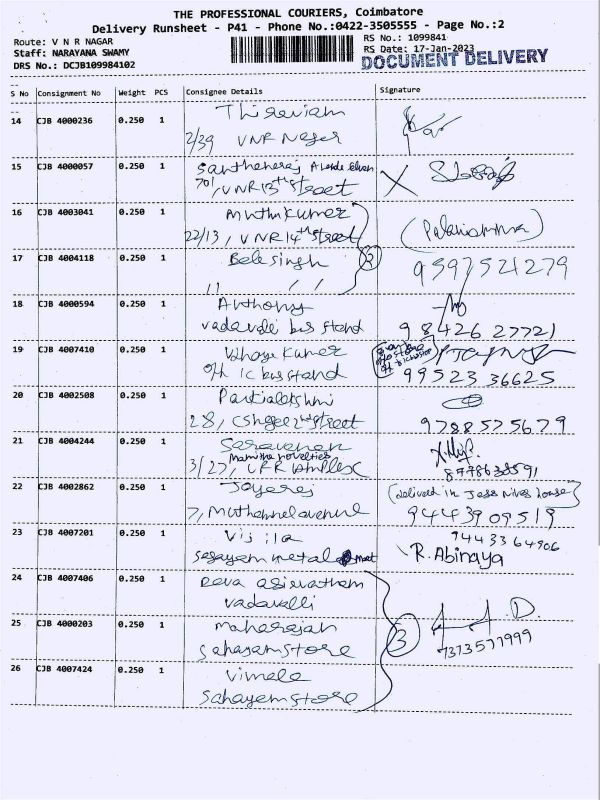 THE PROFESSIONAL COURIERS, Coimbatore
Delivery Runsheet - P41 - Phone No.:0422-3505555 - Page No.:2
Route: V N R NAGAR
RS No.: 1099841
Staff: NARAYANA SWAMY
RS Date: 17-Jan-2023
DRS No.: DCJB109984102
DOCUMENT DELIVERY
S No Consignment No Weight PCS Consignee Details Signature
14 CJB 4000236 0.250 1
2/39 VNR Nager
15 CJB 4000057 0.250 1
701, VNR 13th street
16 CJB 4003041 0.250 1 Muthukumer
22/13, VNR 14th street (Palaniamma)
17 CJB 4004118 0.250 1 Bele singh 2 9597521279
18 CJB 4000594 0.250 1 Anthony
vadavalli bus stand 98426 27721
19 CJB 4007410 0.250 1 Vijaya Kumer
bus stand 99523 36625
20 CJB 2002508 0.250 1
28, 2nd street 9788575679
21 CJB 4004244 0.250 1 Saravenen
Mamitha novelties
3/27, complex
22 CJB 4002862 0.250 1 (delivered in house)
7, avenue 9443909519
23 CJB 4007201 0.250 1 9443364906
metal mart R. Abinaya
24 CJB 4007406 0.250 1 Deva asirvatham
vadavalli
25 CJB 4000203 0.250 1 Maharajan 3 D.
Sahayam store 7373577999
26 CJB 4007424 0.250 1 Vimele
Sahayem store